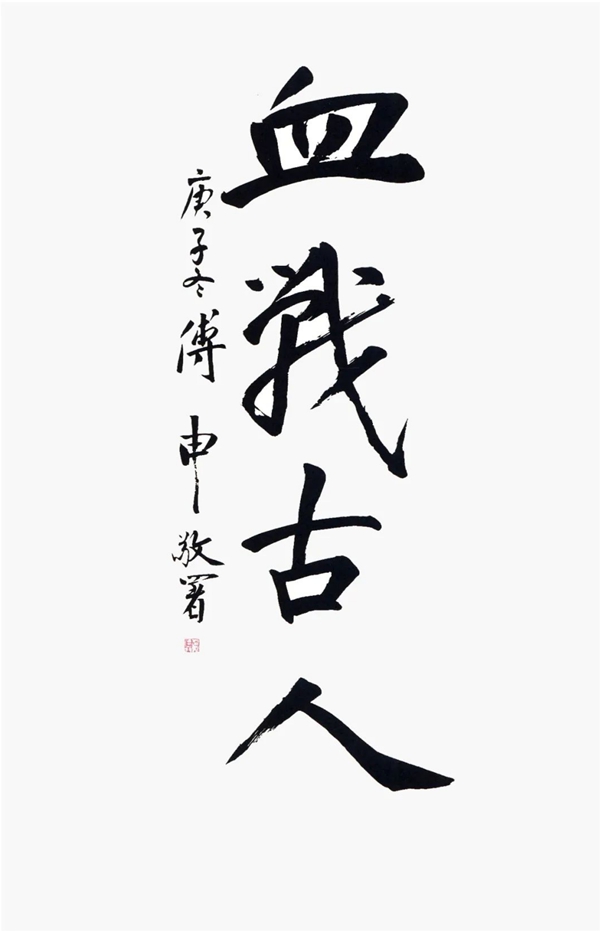 血戰古人
庚子冬傅申敬署